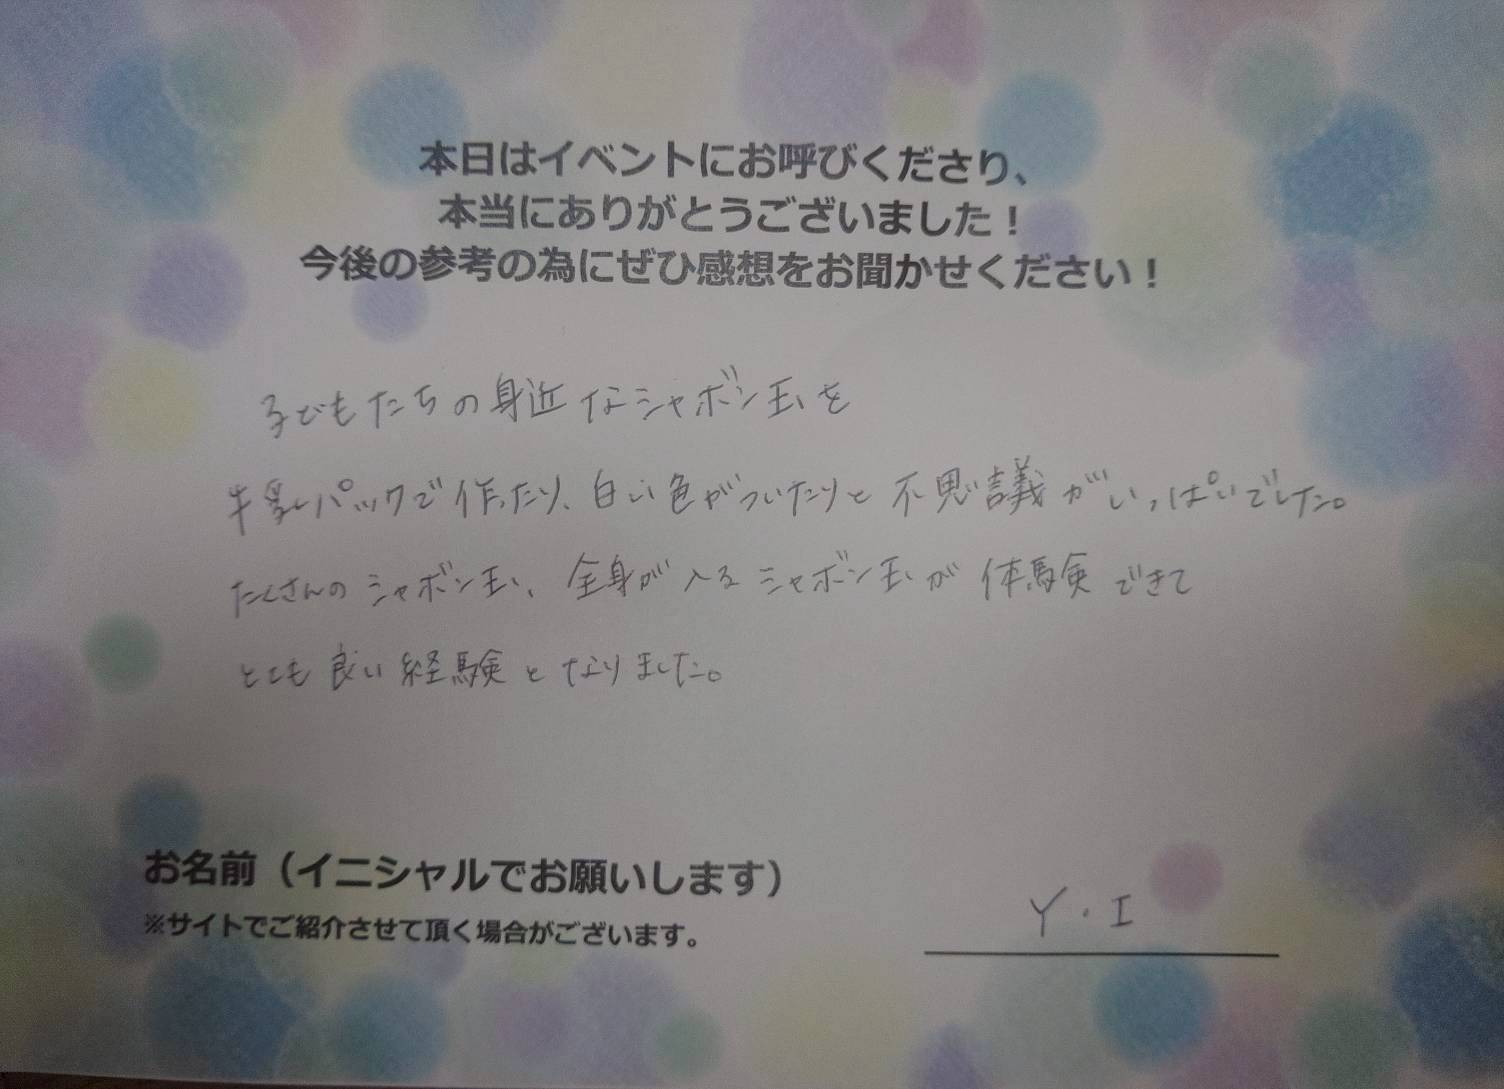 本日はイベントにお呼びくださり、
本当にありがとうございました！
今後の参考の為にぜひ感想をお聞かせください！
子どもたちの身近なシャボン玉を
牛乳パックで作ったり、白い色がついたりと不思議がいっぱいでした。
たくさんのシャボン玉、全身が入るシャボン玉が体験できて
とても良い経験となりました。
お名前（イニシャルでお願いします）
※サイトでご紹介させて頂く場合がございます。
Y・I